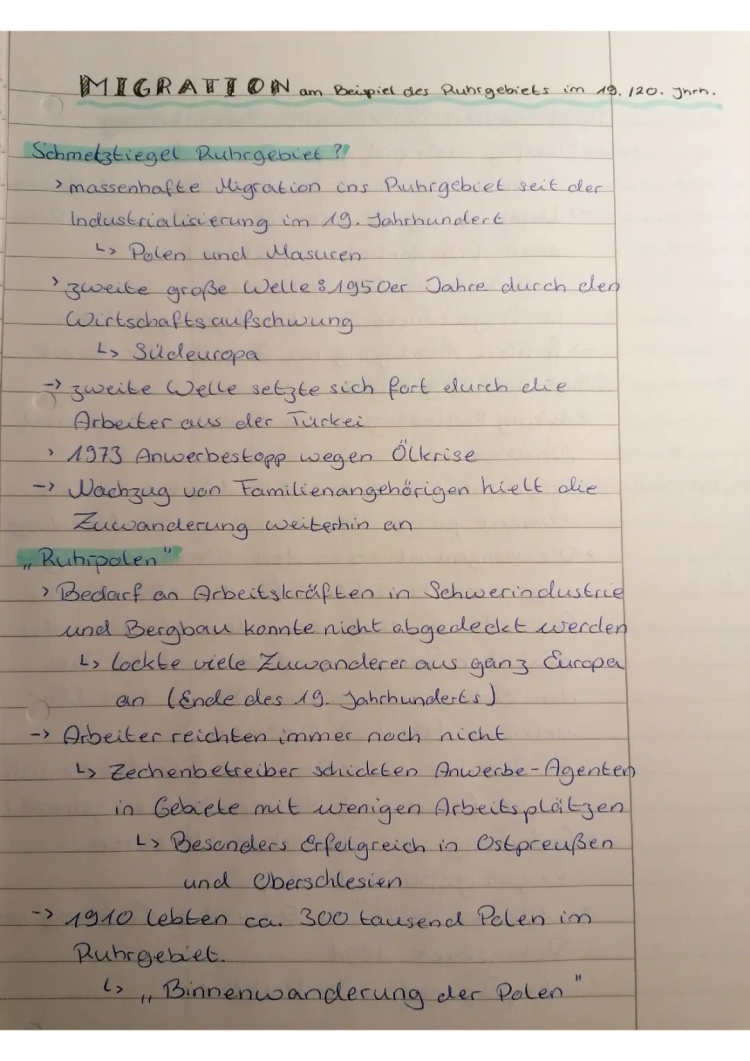 MIGRATION am Beispiel des Ruhrgebiets im 19./20. Jhrh.
Schmelztiegel Ruhrgebiet?
> massenhafte Migration ins Ruhrgebiet seit der
Industrialisierung im 19. Jahrhundert
↳ Polen und Masuren
> zweite große Welle: 1950er Jahre durch den
Wirtschaftsaufschwung
↳ Südeuropa
-> zweite Welle setzte sich fort durch die
Arbeiter aus der Türkei
> 1973 Anwerbestopp wegen Ölkrise
-> Nachzug von Familienangehörigen hielt die
Zuwanderung weiterhin an
„Ruhrpolen"
> Bedarf an Arbeitskräften in Schwerindustrie
und Bergbau konnte nicht abgedeckt werden
↳ lockte viele Zuwanderer aus ganz Europa
an (Ende des 19. Jahrhunderts)
-> Arbeiter reichten immer noch nicht
↳ Zechenbetreiber schickten Anwerbe-Agenten
in Gebiete mit wenigen Arbeitsplätzen
↳ Besonders Erfolgreich in Ostpreußen
und Oberschlesien
-> 1910 lebten ca. 300 tausend Polen im
Ruhrgebiet.
↳ „Binnenwanderung der Polen"